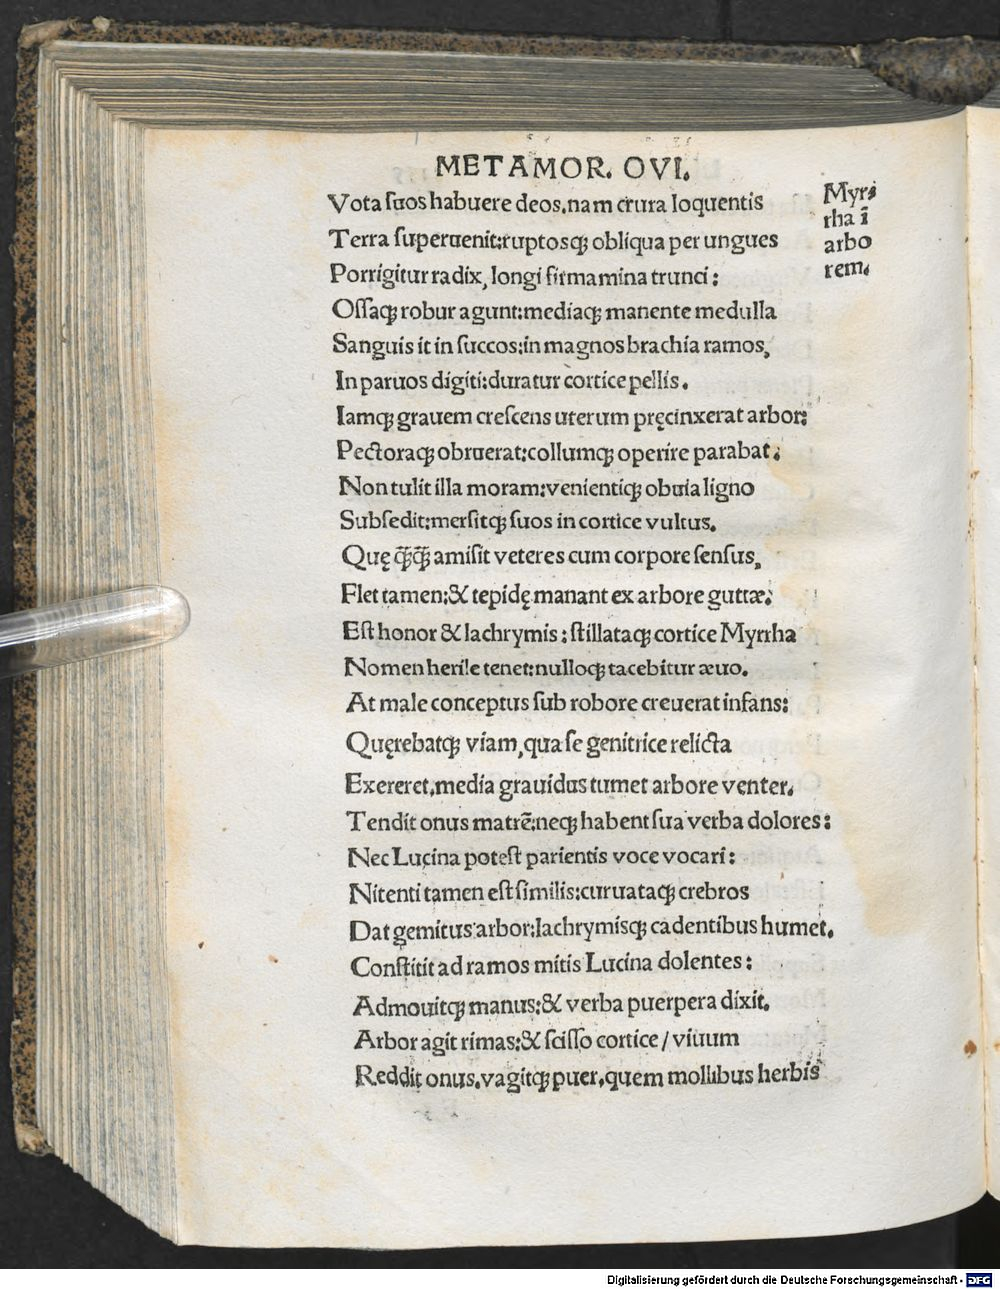 METAMOR. OVI.
Vota suos habuere deos. nam crura loquentis
Terra superuenit: ruptosq; obliqua per ungues
Porrigitur radix, longi firmamina trunci:
Ossaq; robur agunt: mediaq; manente medulla
Sanguis it in succos: in magnos brachia ramos,
In paruos digiti: duratur cortice pellis.
Iamq; grauem crescens uterum pręcinxerat arbor:
Pectoraq; obruerat: collumq; operire parabat.
Non tulit illa moram: venientiq; obuia ligno
Subsedit: mersitq; suos in cortice vultus.
Quę q̃q̃ amisit veteres cum corpore sensus,
Flet tamen: & tepidę manant ex arbore guttæ.
Est honor & lachrymis: stillataq; cortice Myrrha
Nomen herile tenet: nulloq; tacebitur æuo.
At male conceptus sub robore creuerat infans:
Quęrebatq; viam, qua se genitrice relicta
Exereret. media grauidus tumet arbore venter.
Tendit onus matrẽ: neq; habent sua verba dolores:
Nec Lucina potest parientis voce vocari:
Nitenti tamen est similis: curuataq; crebros
Dat gemitus arbor: lachrymisq; cadentibus humet.
Constitit ad ramos mitis Lucina dolentes:
Admouitq; manus: & verba puerpera dixit.
Arbor agit rimas: & scisso cortice / viuum
Reddit onus. vagitq; puer. quem mollibus herbis
Myr-
rha ĩ
arbo
rem.
Digitalisierung gefördert durch die Deutsche Forschungsgemeinschaft - DFG